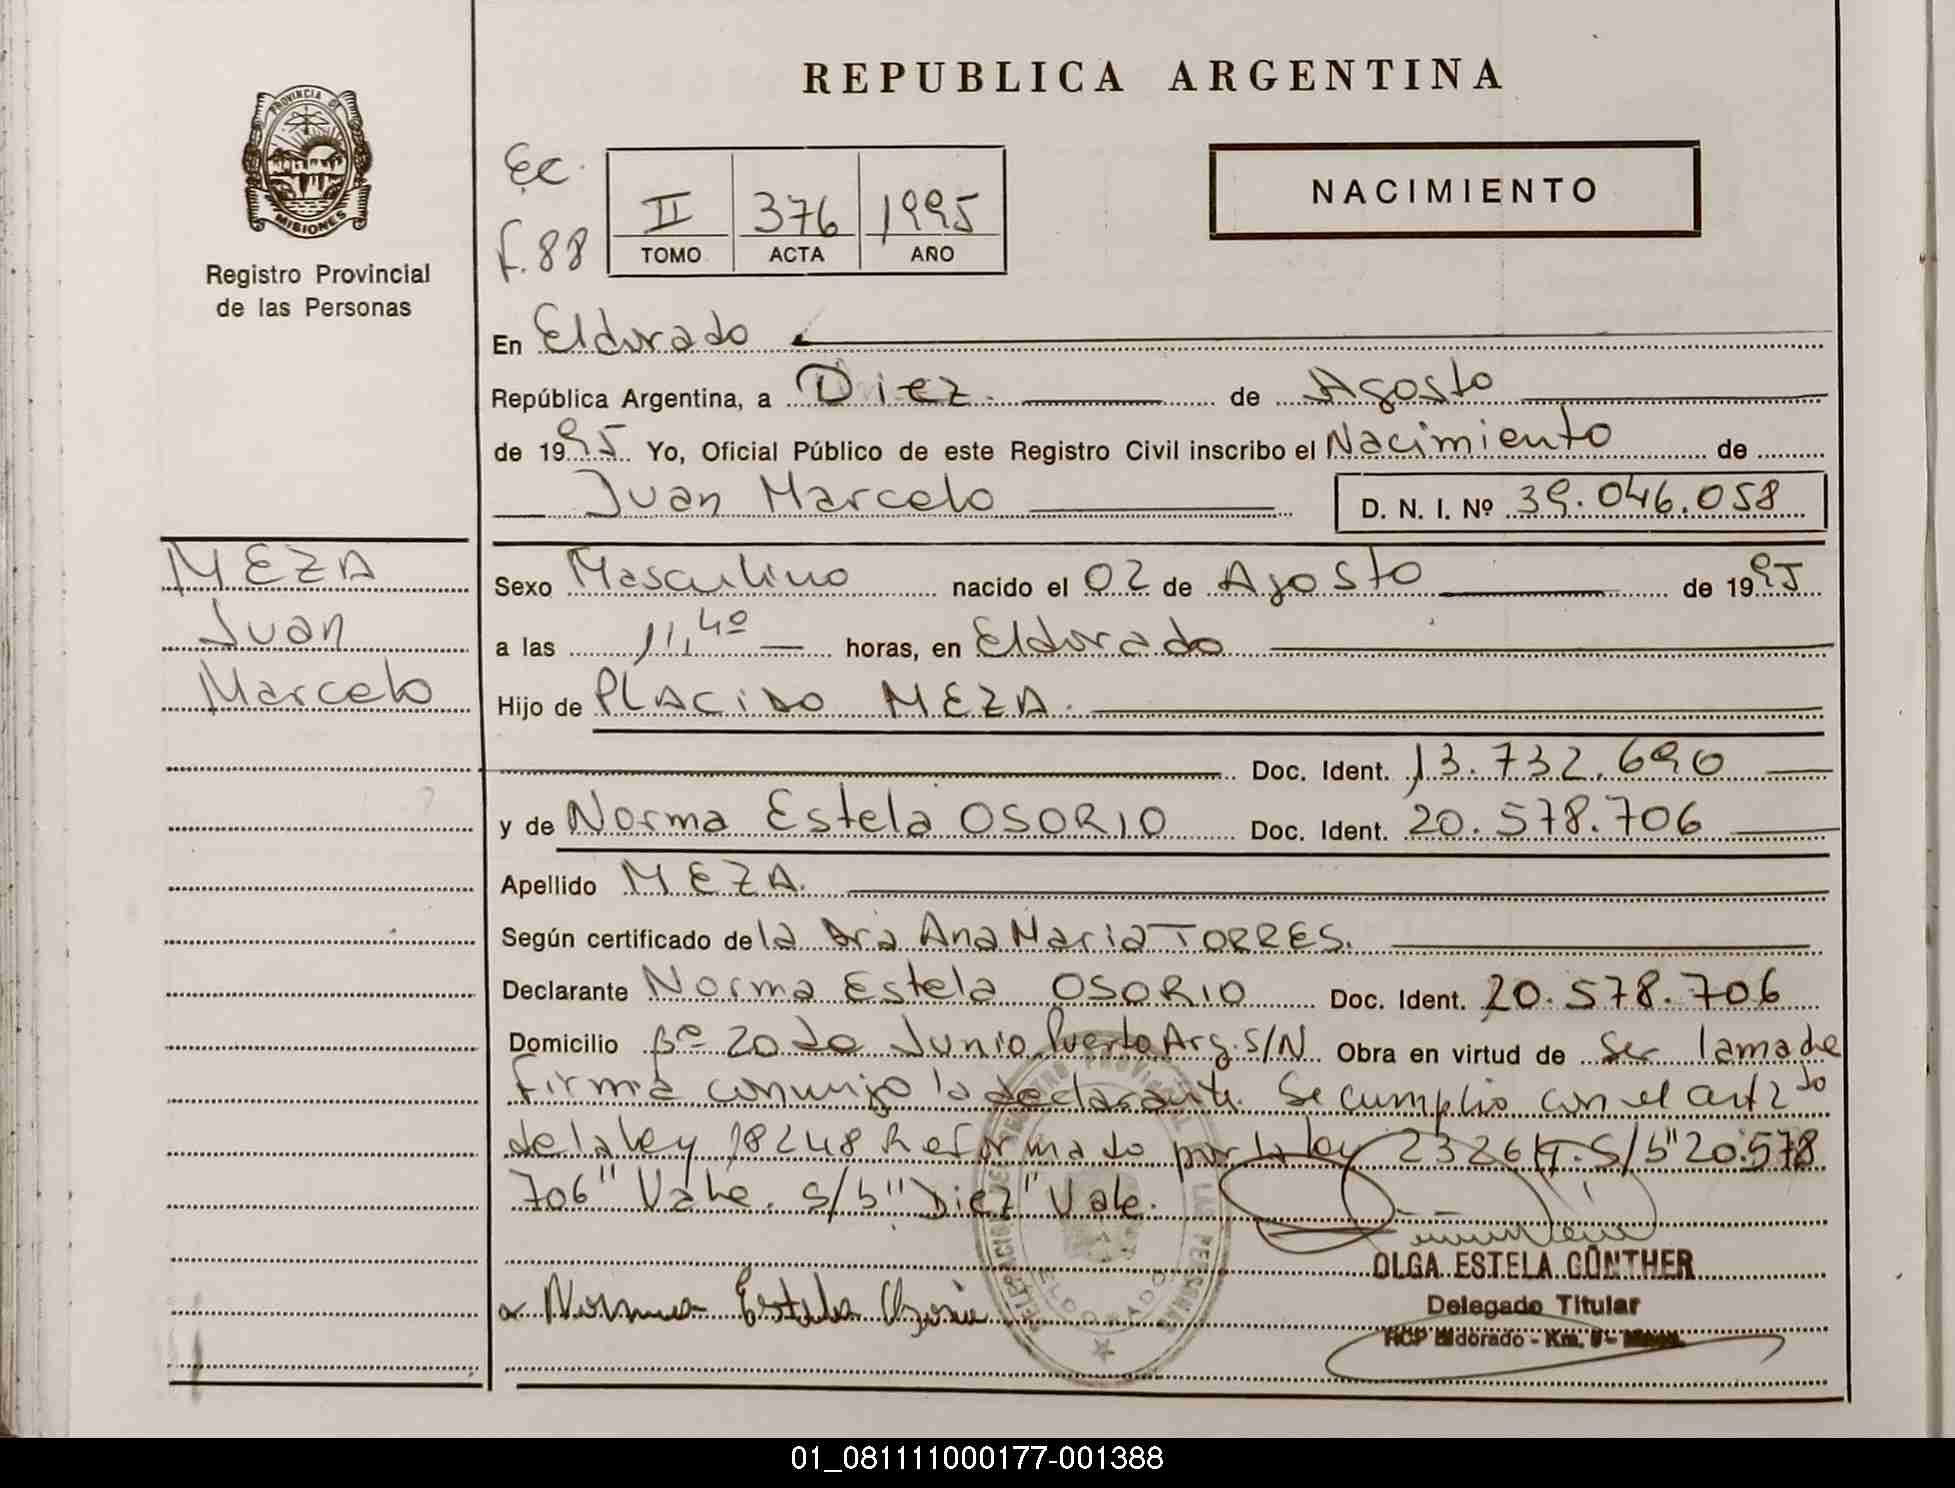 REPUBLICA ARGENTINA
PROVINCIA DE
MISIONES
Registro Provincial
de las Personas
Ec.
F. 88
II 376 1995
TOMO ACTA AÑO
NACIMIENTO
En Eldorado
República Argentina, a Diez de Agosto
de 1995 Yo, Oficial Público de este Registro Civil inscribo el Nacimiento de
Juan Marcelo D. N. I. Nº 39.046.058
MEZA
Juan
Marcelo
Sexo Masculino nacido el 02 de Agosto de 1995
a las 11,40 horas, en Eldorado
Hijo de PLACIDO MEZA.
Doc. Ident. 13.732.690
y de Norma Estela OSORIO Doc. Ident. 20.578.706
Apellido MEZA.
Según certificado de la Dra Ana Maria TORRES.
Declarante Norma Estela OSORIO Doc. Ident. 20.578.706
Domicilio Bº 20 de Junio Puerto Arg. S/N Obra en virtud de Ser la madre
Firma conmigo la declarante. Se cumplio con el art 2do
de la ley 18248 Reformado por la ley 23264. S/b "20.578
706" Vale. S/b "Diez" Vale.
OLGA ESTELA GÜNTHER
Delegado Titular
RCP Eldorado - Km. 9 -
Norma Estela Osorio
ELDORADO
01_081111000177-001388